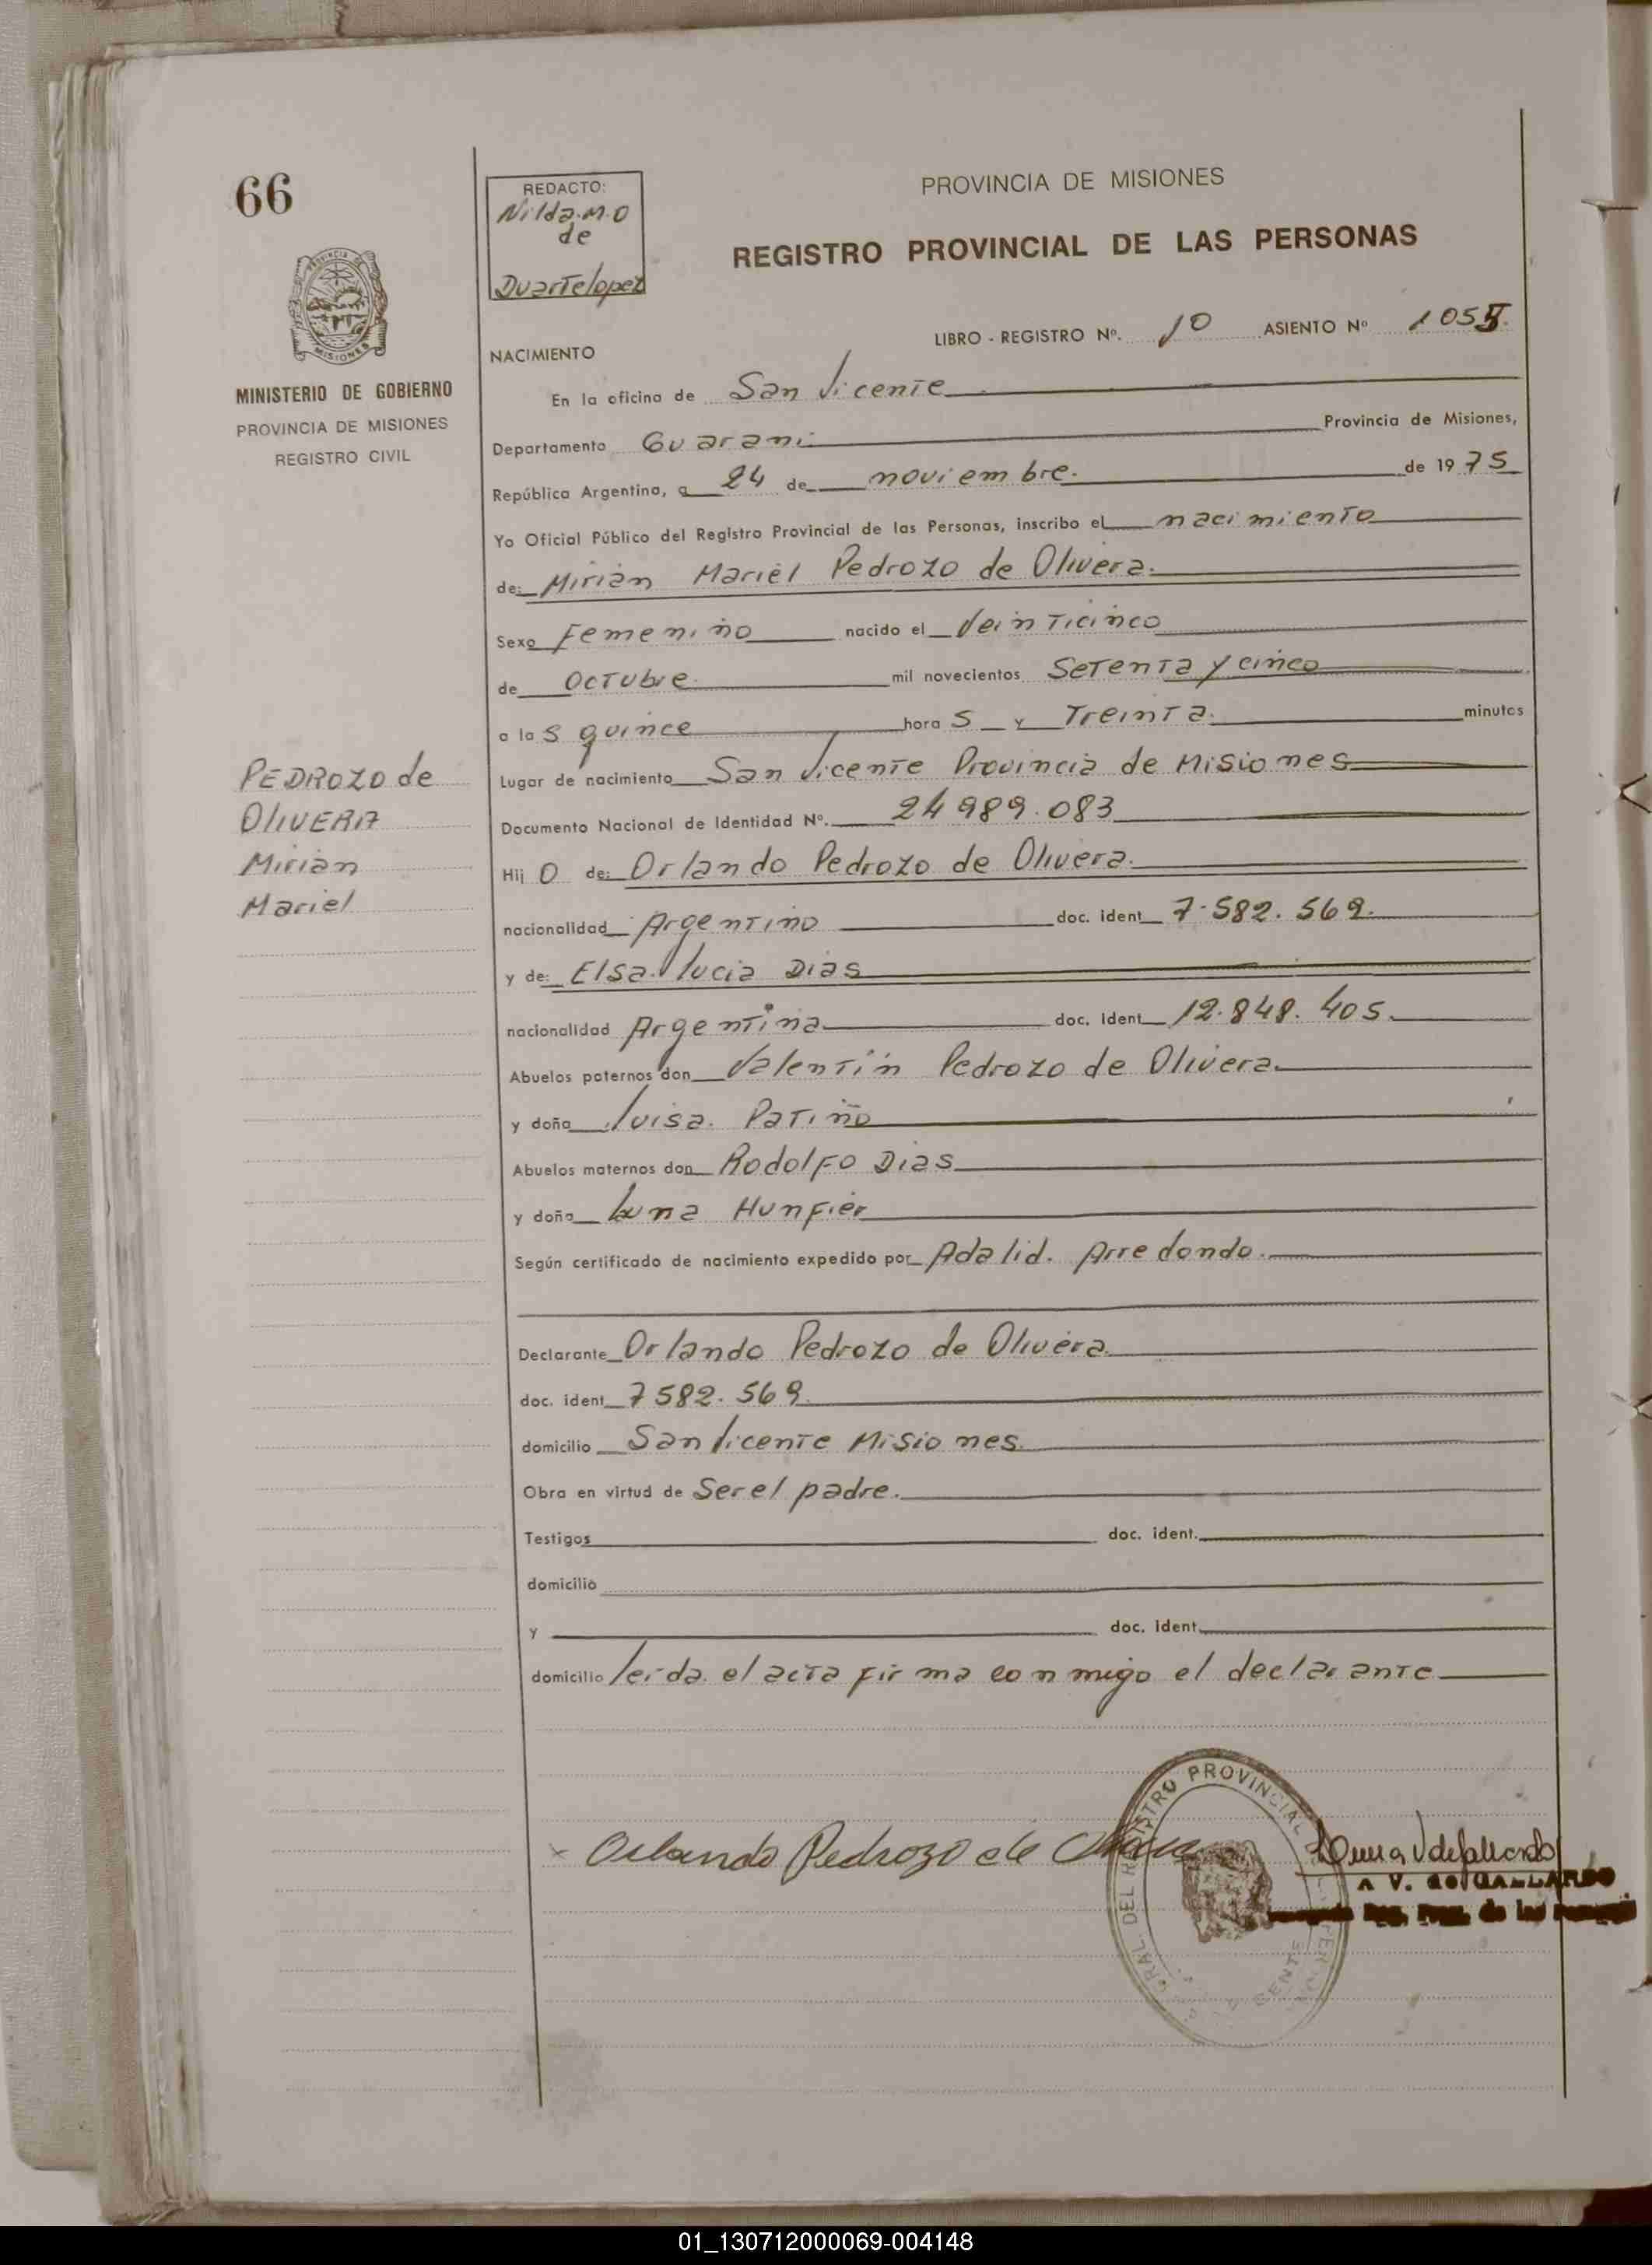 66
REDACTO:
Nilda.M.O
de
Duartelopez
PROVINCIA DE MISIONES
REGISTRO PROVINCIAL DE LAS PERSONAS
PROVINCIA DE
MISIONES
MINISTERIO DE GOBIERNO
PROVINCIA DE MISIONES
REGISTRO CIVIL
LIBRO - REGISTRO Nº. 10 ASIENTO Nº 1055.
NACIMIENTO
En la oficina de San Vicente
Departamento Guarani Provincia de Misiones,
República Argentina, a 24 de noviembre. de 1975
Yo Oficial Público del Registro Provincial de las Personas, inscribo el nacimiento
de: Mirian Mariel Pedrozo de Olivera.
Sexo Femenino nacido el Veinticinco
de Octubre. mil novecientos Setenta y cinco
a las quince horas y Treinta. minutos
Lugar de nacimiento San Vicente Provincia de Misiones
Documento Nacional de Identidad Nº. 24989.083
Hijo de: Orlando Pedrozo de Olivera.
nacionalidad Argentino doc. ident 7.582.569.
y de: Elsa. Lucia Dias
nacionalidad Argentina doc. ident 12.848.405.
Abuelos paternos don Valentin Pedrozo de Olivera
y doña Luisa. Patiño
Abuelos maternos don Rodolfo Dias
y doña Hunfier
Según certificado de nacimiento expedido por Adalid. Arredondo.
Declarante Orlando Pedrozo de Olivera.
doc. ident 7582.569.
domicilio San Vicente Misiones.
Obra en virtud de Ser el padre.
Testigos doc. ident.
domicilio
y doc. ident.
domicilio leida el acta firma conmigo el declarante
PEDROZO de
OLIVERA
Mirian
Mariel
Orlando Pedrozo de
GRAL. DEL REGISTRO PROVINCIAL
V. de GALLARDO
Reg. Prov. de las
01_130712000069-004148